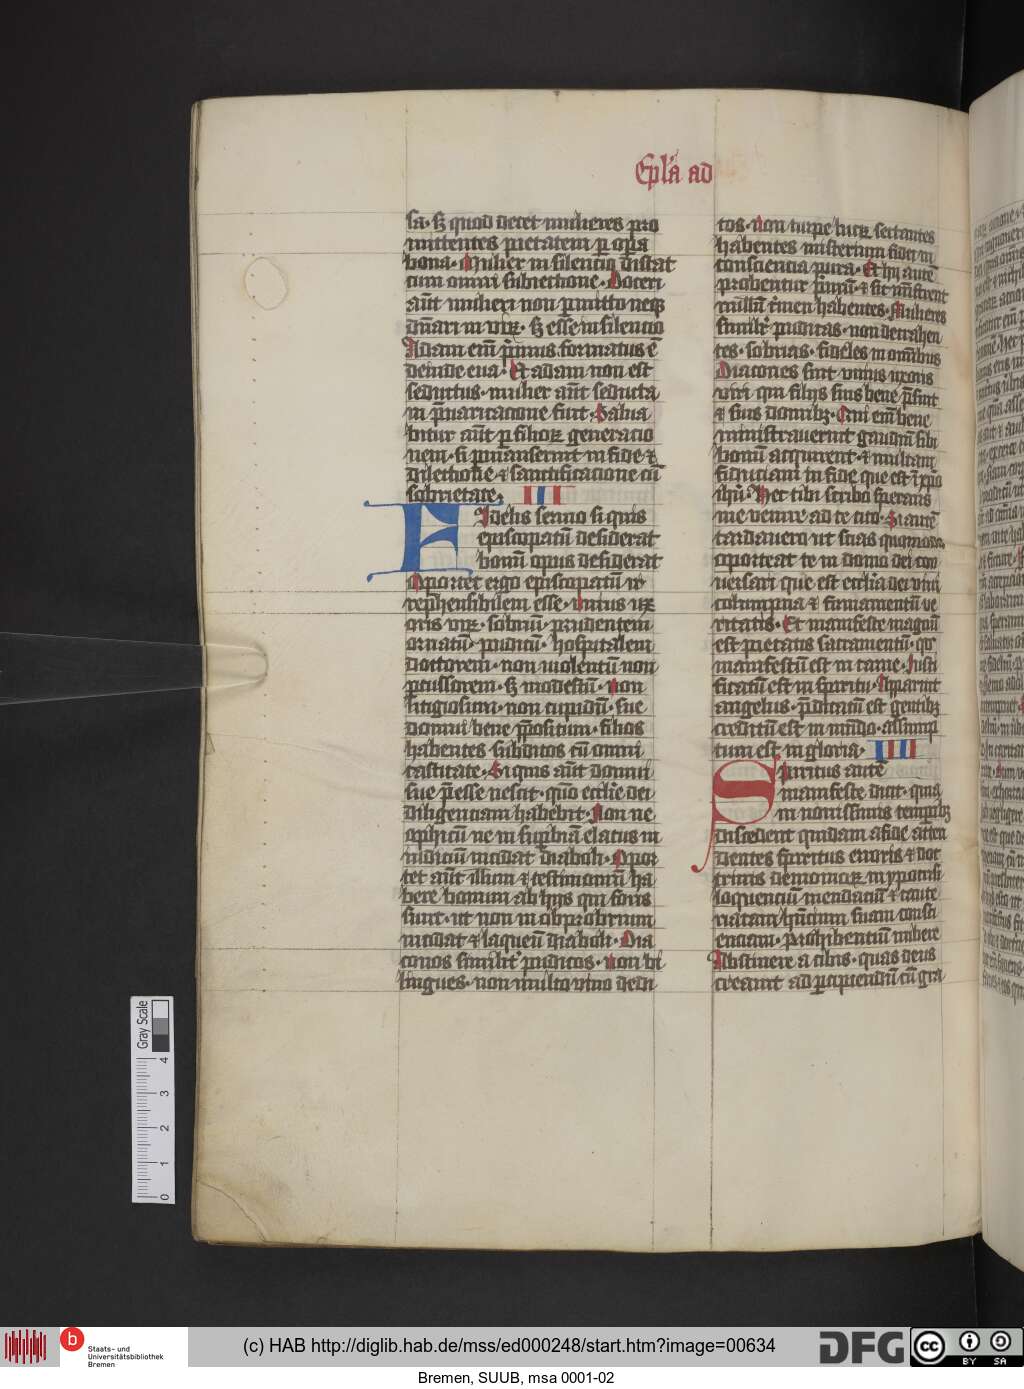 Epl'a ad
sa· sꝫ quod decet mulieres pro
mittentes pietatem ꝑ oꝑa
bona· Mulier in silencio discat
cum omni subiectione· Doceri
aūt mulieri non ꝑmitto neqꝫ
dn̄ari in viꝝ· sꝫ esse in silencio
Adam em̄ p̄mus formatus ē
deinde eua· Et adam non est
seductus· mulier aūt seducta
in p̄uaricacione fuit· Salua
bitur aūt ꝑ filioꝝ generacio
nem· si ꝑmanserint in fide ⁊
dilectione ⁊ sanctificacione cū
sobrietate· III
Fidelis sermo si quis
episcopatū desiderat
bonū opus desiderat
Oportet ergo episcopatū ir
rep̄hensibilem esse· vnius vx
oris viꝝ· sobriū· prudentem
ornatū· pudicū· hospitalem
doctorem· non violentū non
ꝑcussorem· sꝫ modestū· non
litigiosum· non cupidū· sue
domui bene p̄positum· filios
habentes subditos cū omni
castitate· Si quis aūt domui
sue p̄esse nescit· quō ecclie dei
diligenciam habebit· Non ne
ophitū ne in suꝑbiā elatus in
iudiciū incidat diaboli· Opor
tet aūt illum ⁊ testimoniū ha
bere bonum ab hijs qui foris
sunt· ut non in obprobrium
incidat ⁊ laqueū diaboli· Dia
conos similit' pudicos· non bi
lingues· non multo vino dedi
tos· Non turpe lucꝝ sectantes
habentes misterium fidei in
consciencia pura· Et hi autē
probentur p̄mū· ⁊ sic ministrent
nullū c̄men habentes· Mulieres
similr' pudicas· non detrahen
tes· sobrias· fideles in omībus
Diacones sint vnius uxoris
viri qui filijs suis bene p̄sint
⁊ suis domibꝫ· Qui em̄ bene
ministrauerint gradū sibi
bonū acquirent· ⁊ multam
fiduciam in fide que est ī xp̄o
ih̄u· Hec tibi scribo sperans
me venire ad te cito· Si autē
tardauero ut scias quomodo
oporteat te in domo dei con
uersari que est ecclia dei viui
columpna ⁊ firmamentū ve
ritatis· Et manifeste magnū
est pietatis sacramentū· qd'
manifestū est in carne· Iusti
ficatū est in spiritu· Apparuit
angelis· p̄dicatū est gentibꝫ
creditū est in mūdo· assump
tum est in gloria· IIII
Spiritus autē
manifeste dicit· quia
in nouissimis temporibꝫ
discedent quidam a fide atten
dentes spiritus erroris ⁊ doc
trinis demonioꝝ in ypocrisi
loquenciū mendaciū ⁊ caute
riatam h̄ncium suam consci
enciam· Prohibentiū nubere
Abstinere a cibis· quas deus
creauit ad ꝑcipiendū cū gra
Gray Scale
4
3
2
1
0
b
Staats- und
Universitätsbibliothek
Bremen
(c) HAB http://diglib.hab.de/mss/ed000248/start.htm?image=00634
DFG
cc BY SA
Bremen, SUUB, msa 0001-02